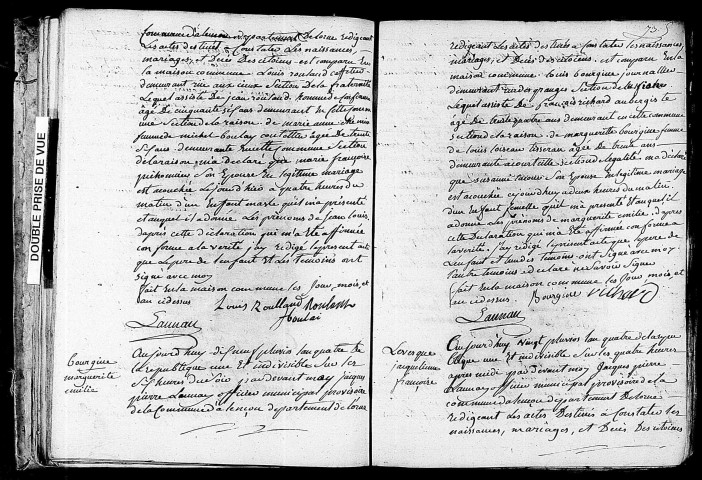 commune d'alençon departement De lorne redigeant
Les actes destinés a Constater Les naissances,
mariages, et Décès Des citoiens est comparu En
La maison commune Louis rouland
demeurant rue aux cieux Section De la fraternité
Lequel assisté De jean rouland homme de confiance
âgé De cinquante six ans demeurant en cette commune
Section de la raison. de marie anne
femme de michel boulay âgée de trente
ans, demeurante en cette commune Section
de la raison qui a déclaré que marie françoise
Son Epouse En légitime mariage
est accouchée Le jourd'hier à quatre heures du
matin d'un Enfant masle qu'il m'a présenté
et auquel il a donné Les prénoms de jean Louis,
d'après cette déclaration qui m'a été affirmée
conforme a la vérité j'ay redigé le present acte
que Le pere de l'enfant Et Les temoins ont
signé avec moy
fait En la maison commune les jour, mois, et
an cidessus
Louis Roulland Roulland
boulai
Launay
Bourgine
marguerite
emilie
Aujourd'huy dix neuf pluviose l'an quatre De
La republique une Et indivisible Sur les
heures du Soir par devant moy jacques
pierre Launay officier municipal provisoire
de la Commune d'alençon département de l'orne
DOUBLE PRISE DE VUE
73
redigeant Les actes destinés a constater les naissances,
mariages, et Décès Des citoiens. est comparu en La
maison commune Louis bourgine journallier
demeurant rue des granges Section de la
Lequel assisté De françois richard aubergiste
âgé De trente quatre ans demeurant en cette commune
Section de la raison. de marguerite bourgine femme
de Louis loiseau tisseran âgée De trente ans
demeurante aussi cette Section de l'egalité. m'a déclaré
que susanne Son Epouse En légitime mariage
est accouchée cejourd'huy a deux heures du matin
d'un Enfant femelle qu'il m'a presenté Et auquel il
a donné Les prénoms de marguerite emilie, d'après
cette Déclaration qui m'a Eté affirmée conforme a
la vérité, j'ay redigé le present acte que le pere de
L'enfant et l'un des temoins ont Signé avec moy
L'autre temoins a declaré ne savoir Signé
fait En la maison commune Les jour mois, et
an cidessus. Bourgine richard
Launay
jacqueline
françoise
Aujourd'huy Vingt pluviose l'an quatre de la repu-
blique une Et indivisible Sur les quatre heures
après midi par devant moy jacques pierre
Launay officier municipal provisoire de la
commune d'alençon departement De lorne
redigeant Les actes Destinés a Constater les
naissances, mariages, et Décès Des citoiens